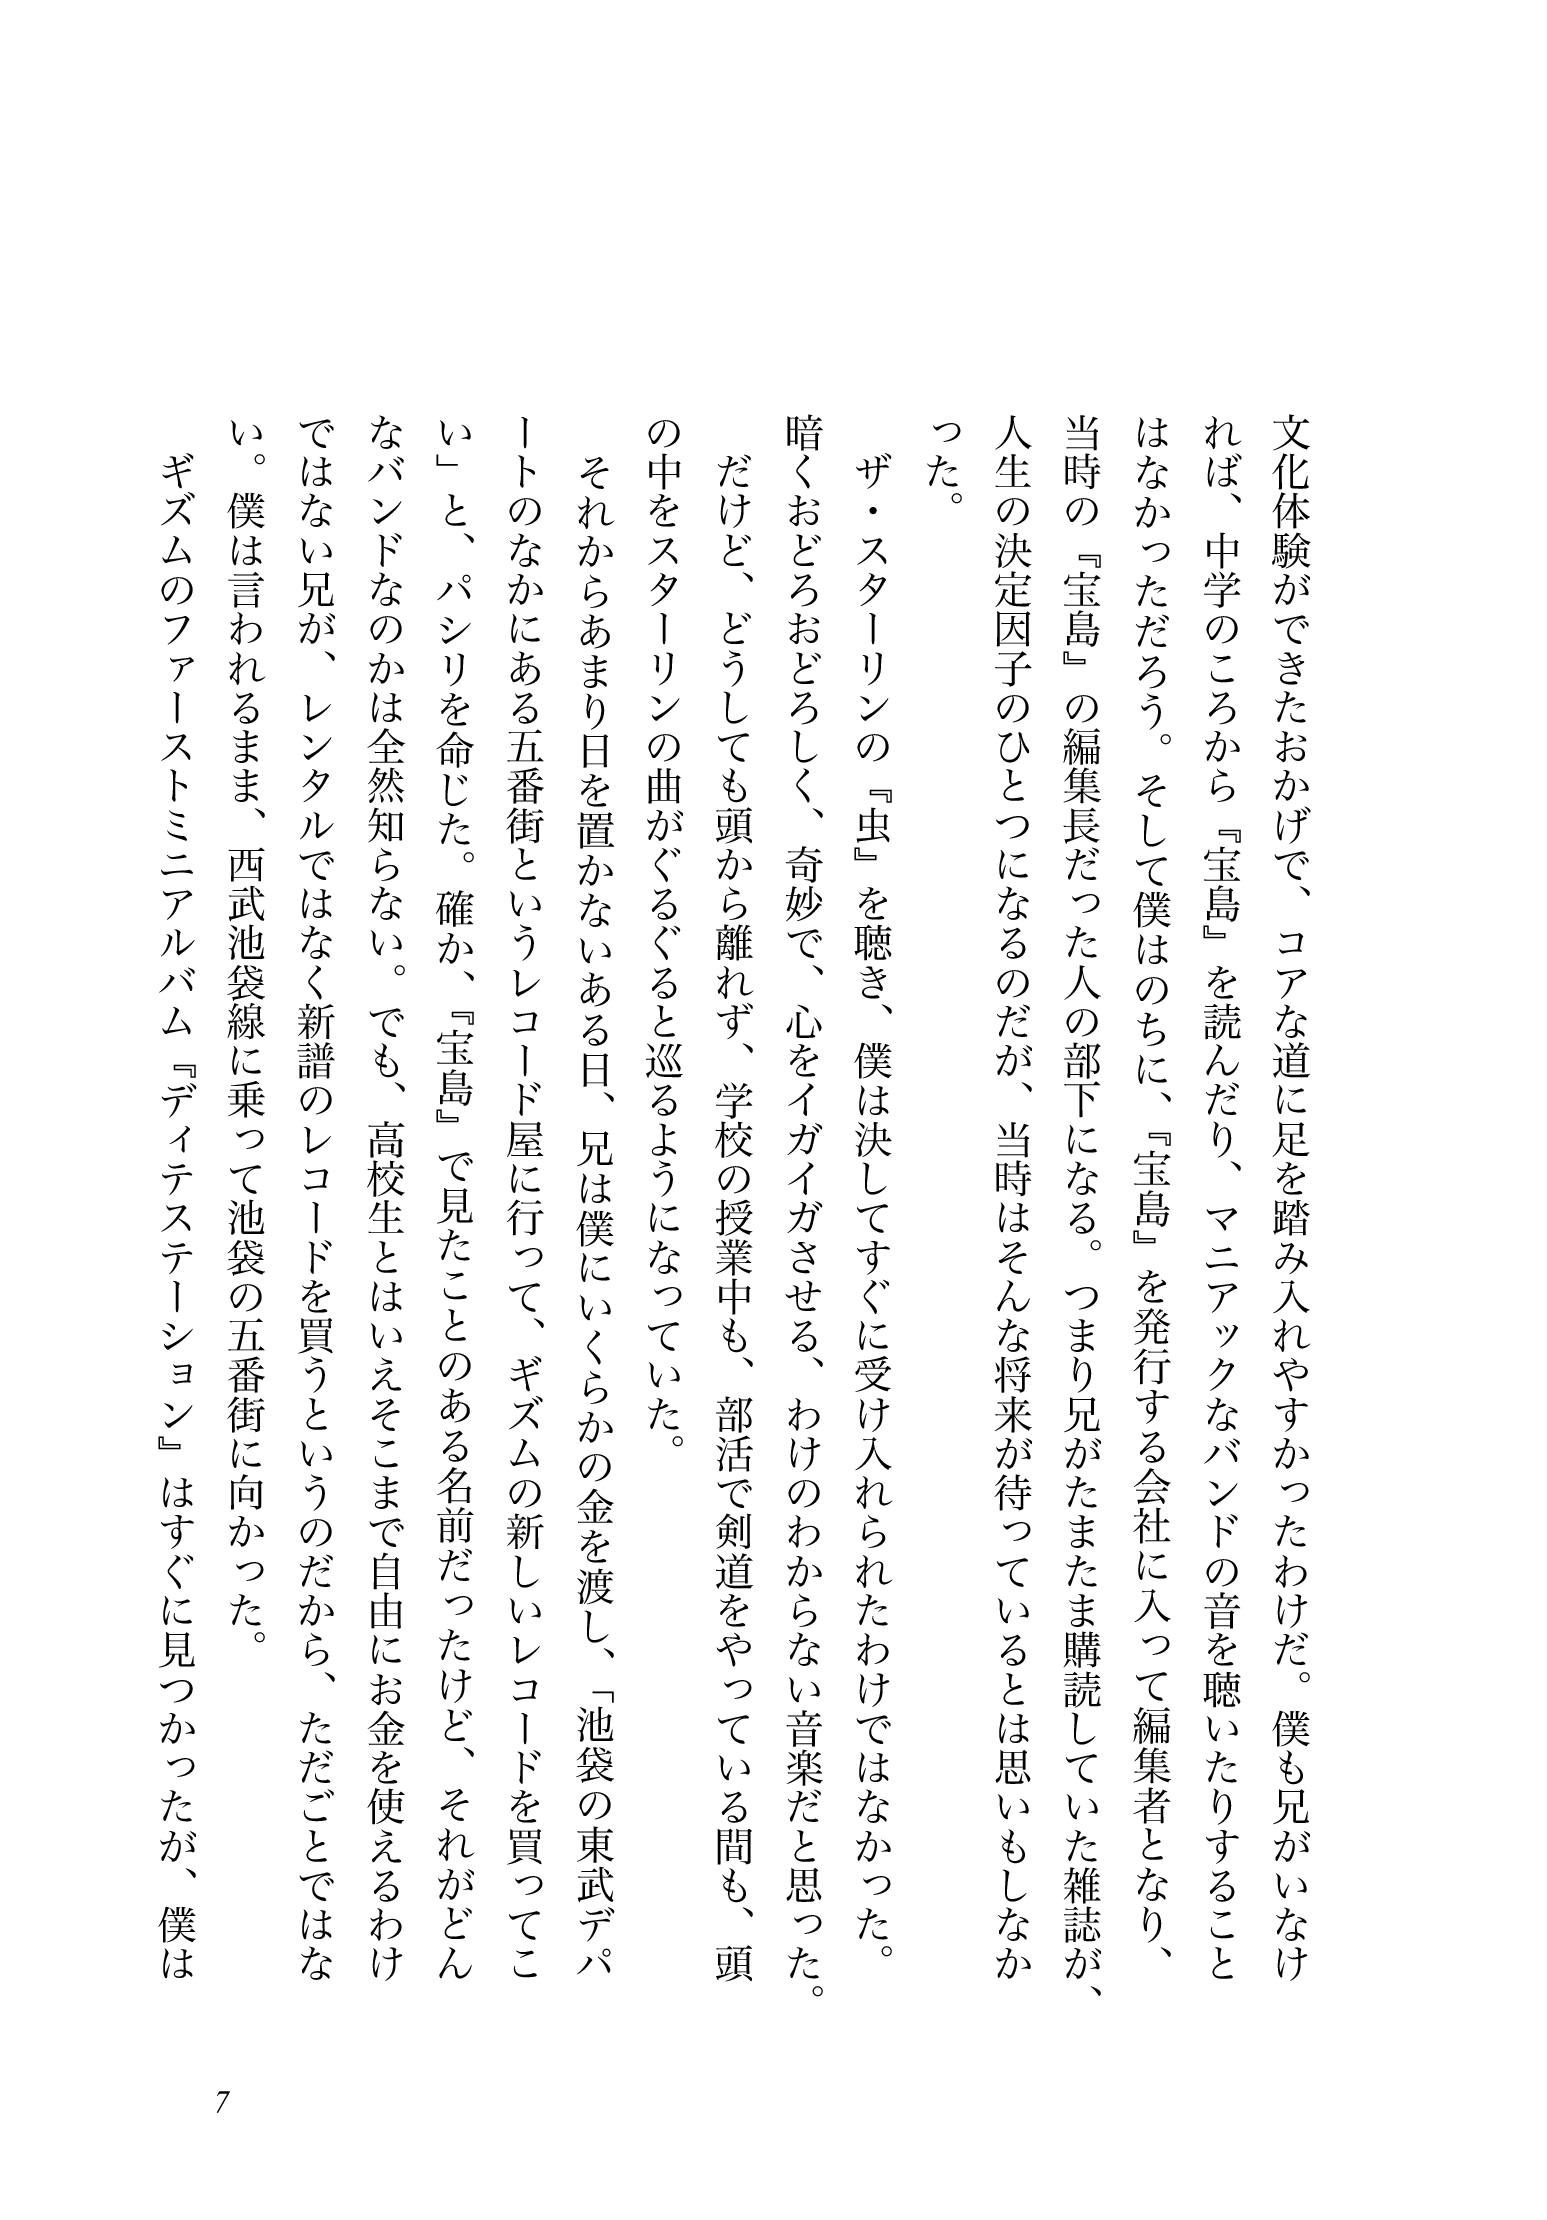 文化体験ができたおかげで、コアな道に足を踏み入れやすかったわけだ。僕も兄がいなけ
れば、中学のころから『宝島』を読んだり、マニアックなバンドの音を聴いたりすること
はなかっただろう。そして僕はのちに、『宝島』を発行する会社に入って編集者となり、
当時の『宝島』の編集長だった人の部下になる。つまり兄がたまたま購読していた雑誌が、
人生の決定因子のひとつになるのだが、当時はそんな将来が待っているとは思いもしなか
った。
　ザ・スターリンの『虫』を聴き、僕は決してすぐに受け入れられたわけではなかった。
暗くおどろおどろしく、奇妙で、心をイガイガさせる、わけのわからない音楽だと思った。
　だけど、どうしても頭から離れず、学校の授業中も、部活で剣道をやっている間も、頭
の中をスターリンの曲がぐるぐると巡るようになっていた。
　それからあまり日を置かないある日、兄は僕にいくらかの金を渡し、「池袋の東武デパ
ートのなかにある五番街というレコード屋に行って、ギズムの新しいレコードを買ってこ
い」と、パシリを命じた。確か、『宝島』で見たことのある名前だったけど、それがどん
なバンドなのかは全然知らない。でも、高校生とはいえそこまで自由にお金を使えるわけ
ではない兄が、レンタルではなく新譜のレコードを買うというのだから、ただごとではな
い。僕は言われるまま、西武池袋線に乗って池袋の五番街に向かった。
　ギズムのファーストミニアルバム『ディテステーション』はすぐに見つかったが、僕は
7